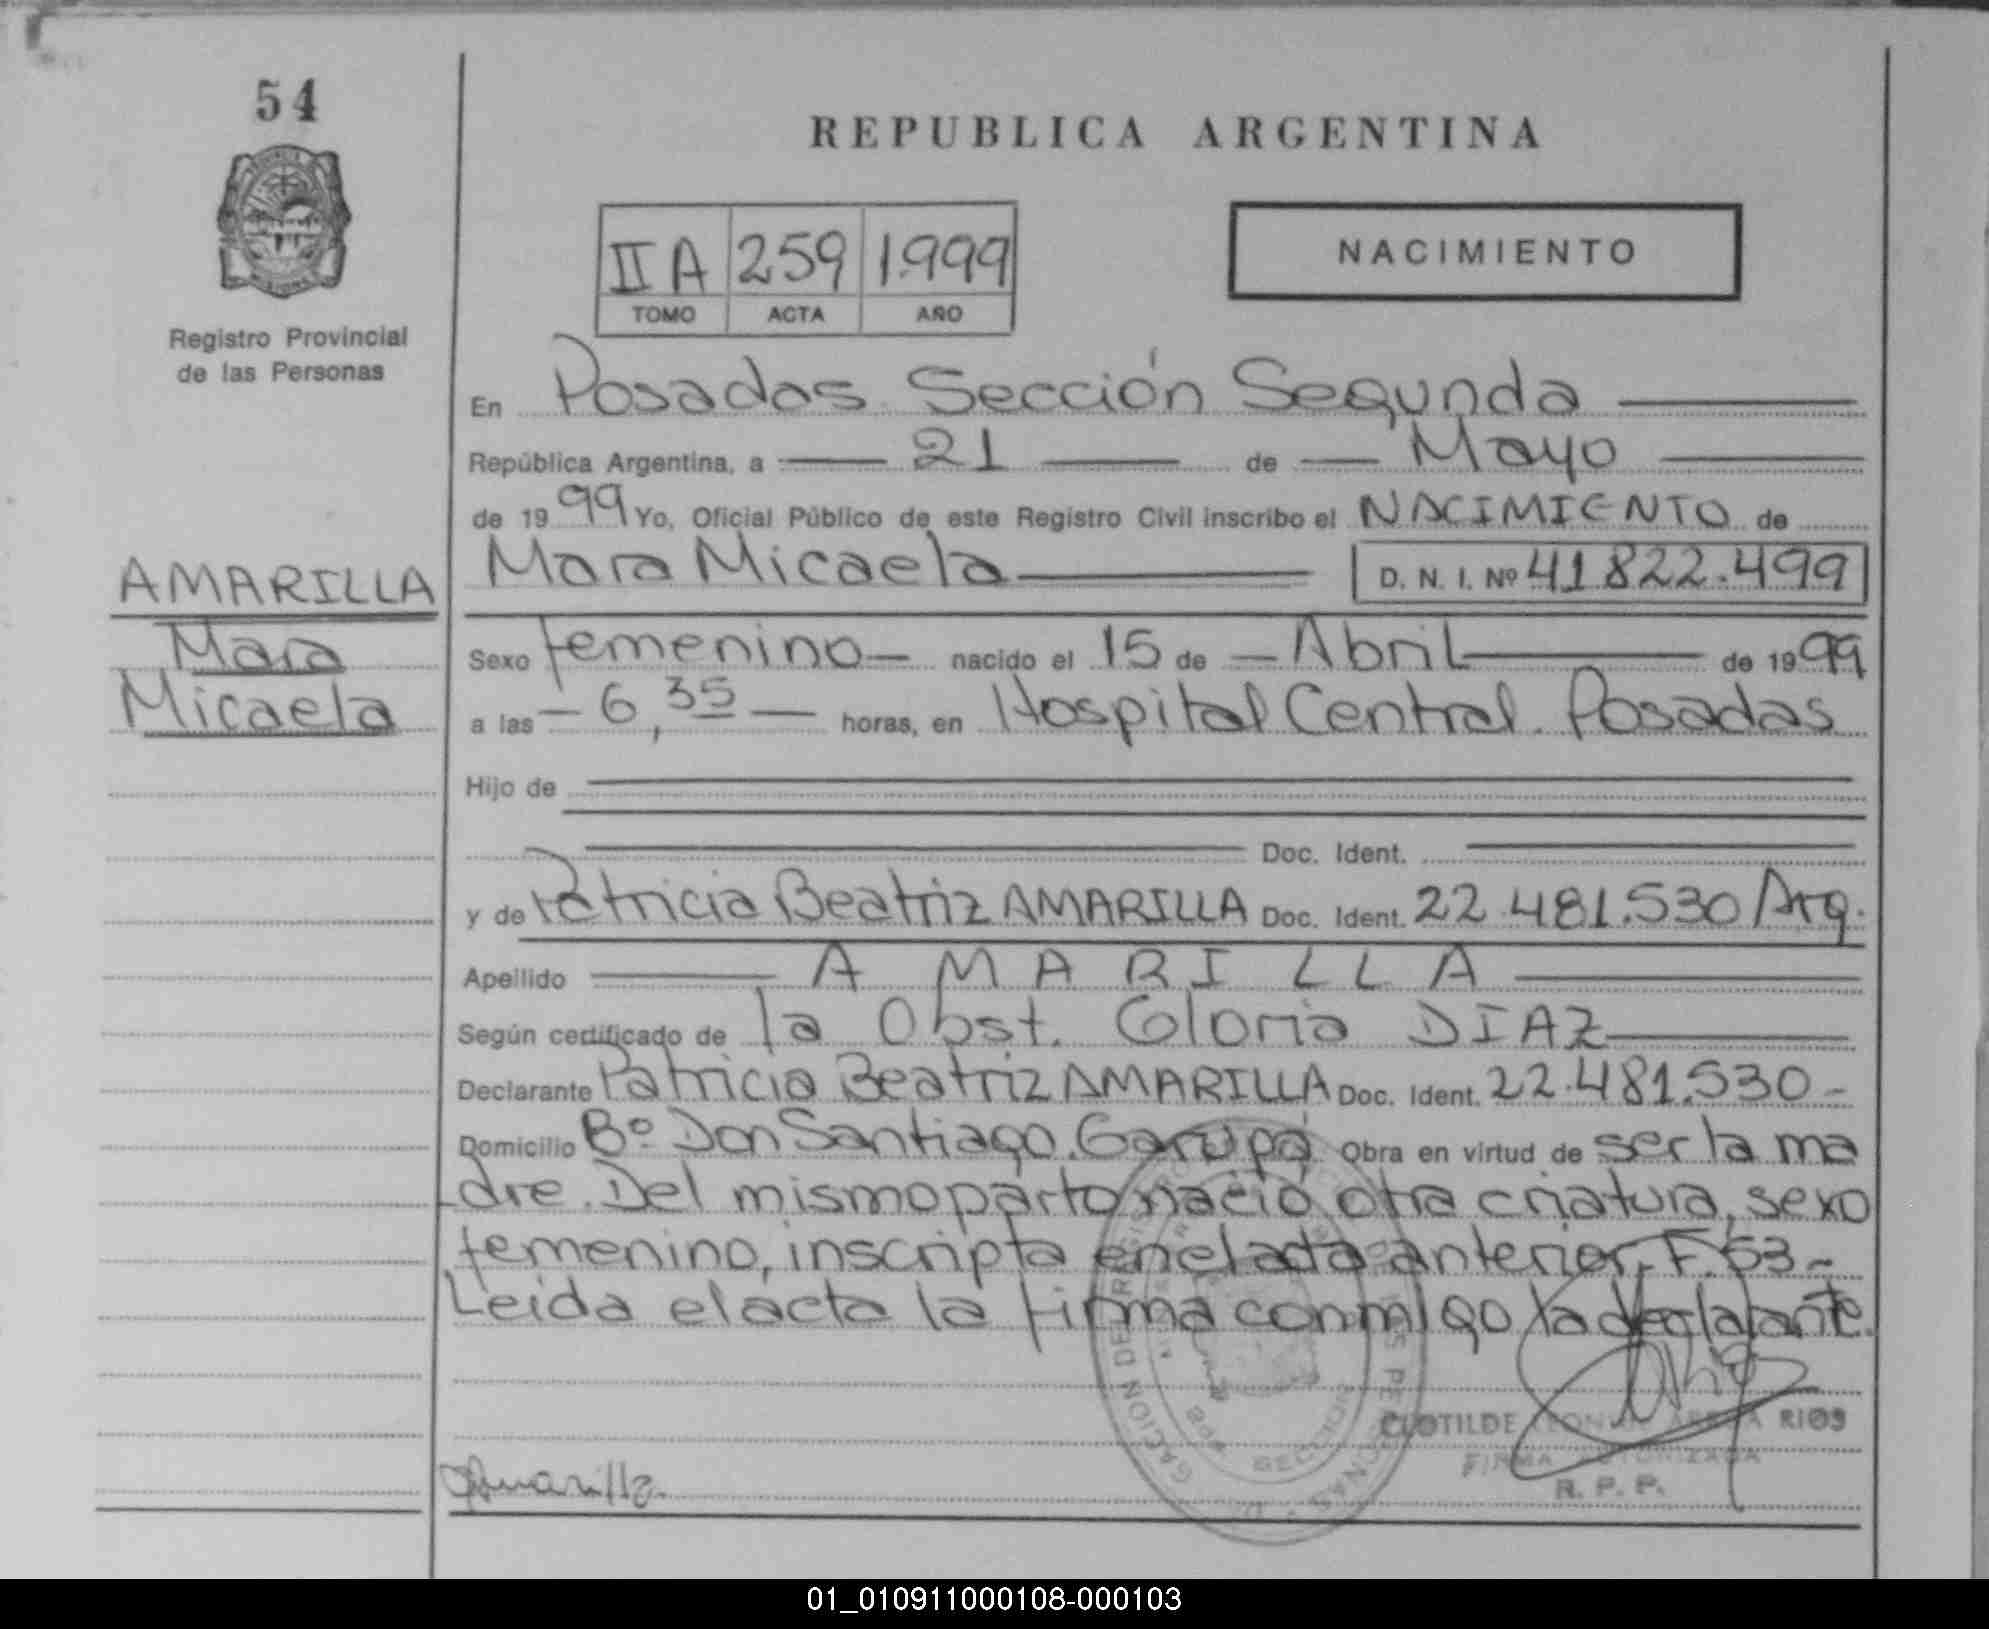 54
REPUBLICA ARGENTINA
IIA 259 1.999
TOMO ACTA AÑO
NACIMIENTO
Registro Provincial
de las Personas
En Posadas Sección Segunda
República Argentina, a 21 de Mayo
de 1999 Yo, Oficial Público de este Registro Civil inscribo el NACIMIENTO de
Mara Micaela D. N. I. Nº 41822.499
AMARILLA
Mara
Micaela
Sexo femenino nacido el 15 de Abril de 1999
a las 6,35 horas, en Hospital Central. Posadas
Hijo de
Doc. Ident.
y de Patricia Beatriz AMARILLA Doc. Ident. 22.481.530 Arg.
Apellido AMARILLA
Según certificado de la Obst. Gloria DIAZ
Declarante Patricia Beatriz AMARILLA Doc. Ident. 22.481.530-
Domicilio Bº Don Santiago. Garupá Obra en virtud de ser la ma
dre. Del mismo parto nació otra criatura, sexo
femenino, inscripta en el acta anterior, F. 53-
Leída el acta la firma conmigo la declarante.
CLOTILDE RIOS
FIRMA AUTORIZADA
R. P. P.
Amarilla.
01_010911000108-000103